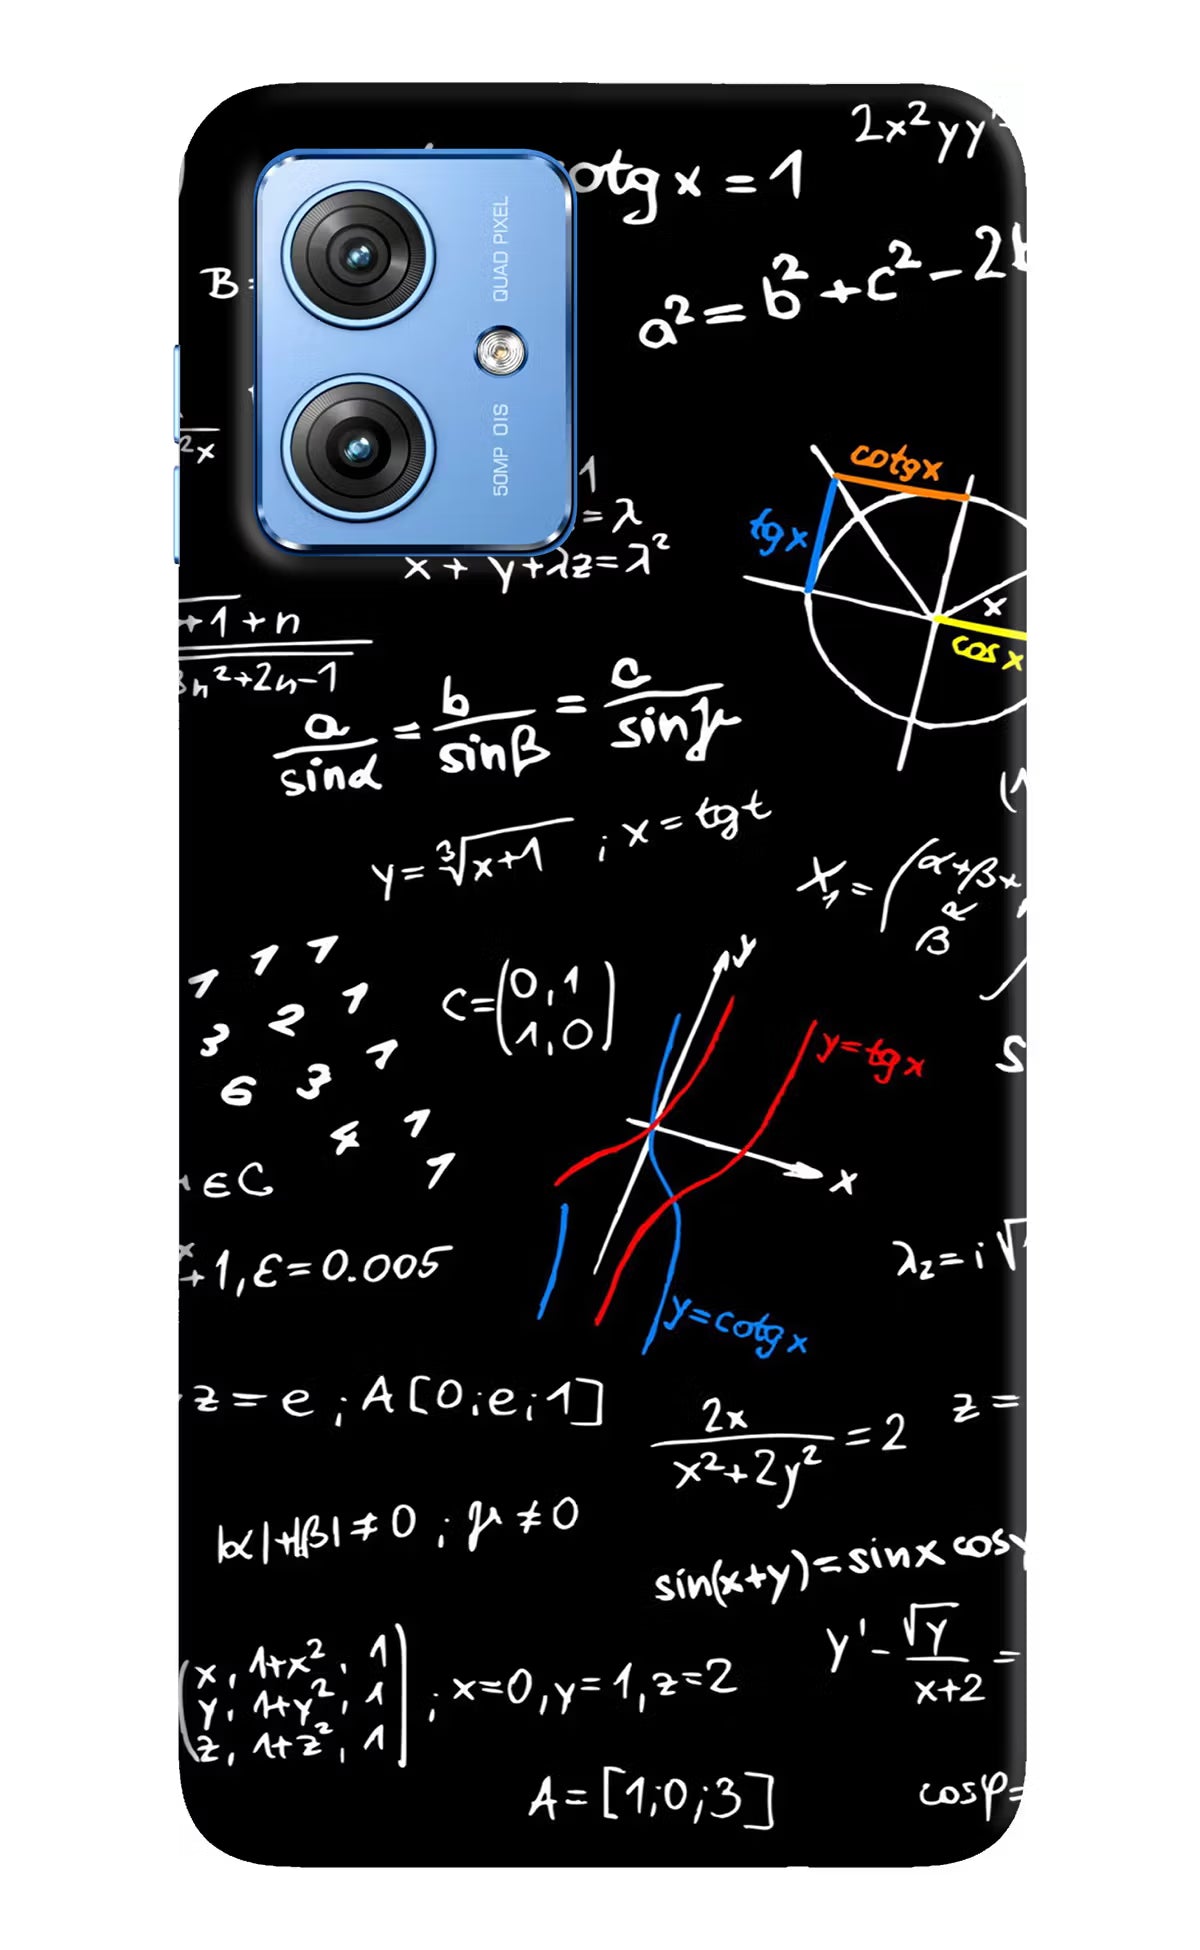 2x²yy'
otg x = 1
QUAD PIXEL
B:
a² = b² + c² - 2b
50MP OIS
2x
cotgx
1
= λ
tgx
x + y + λz = λ²
x
+1 + n
cos x
3n²+2n-1
a/sinα = b/sinβ = c/sinγ
y = ∛(x+1) ; x = tgt
X₁ = (α+β+
β R
1 1 1
3 2 1
6 3 1
4 1
1
C = (0,1
1,0)
y
y=tgx
S
x
∈C
+1, ε = 0.005
λ₂ = i√
y=cotgx
z = e ; A[0;e;1]
2x/(x²+2y²) = 2
z =
|α|+|β| ≠ 0 ; μ ≠ 0
sin(x+y) = sinx cosy
y' - √y/(x+2) =
(x, 1+x², 1
y, 1+y², 1
z, 1+z², 1) ; x=0, y=1, z=2
A = [1;0;3]
cosφ=